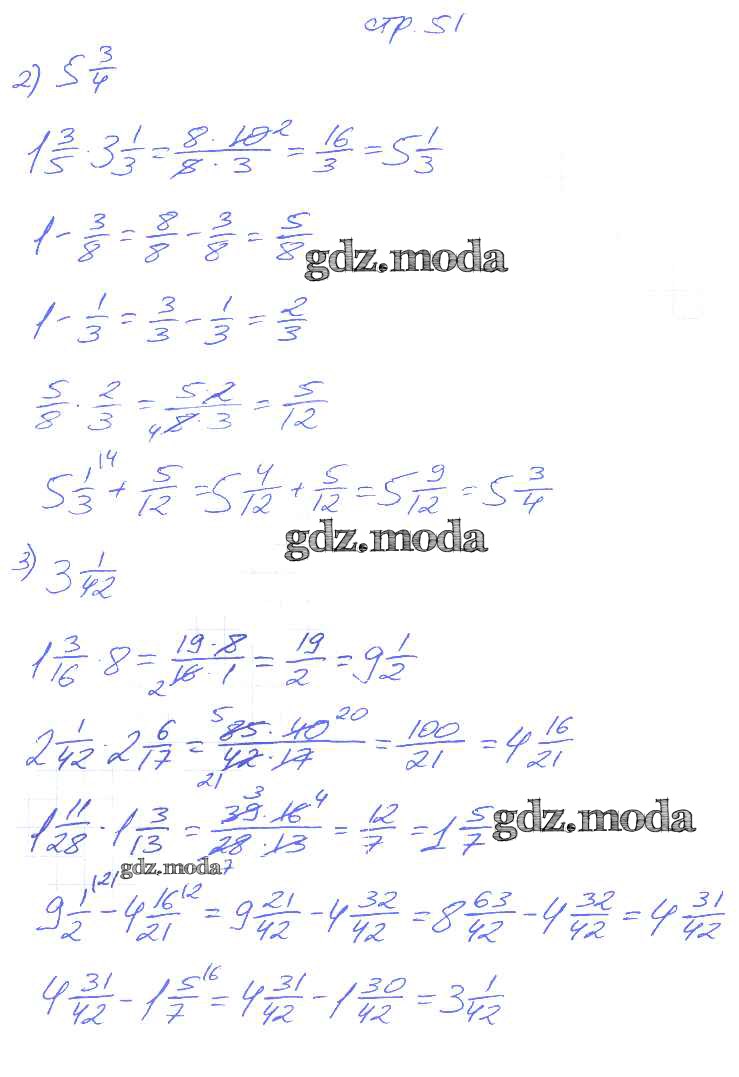 стр. 51
2) 5 3/4
1 3/5 · 3 1/3 = 8 · 10 2 / 5 · 3 = 16/3 = 5 1/3
1 - 3/8 = 8/8 - 3/8 = 5/8
gdz.moda
1 - 1/3 = 3/3 - 1/3 = 2/3
5/8 · 2/3 = 5 · 2 / 4 8 · 3 = 5/12
5 1/3 14 + 5/12 = 5 4/12 + 5/12 = 5 9/12 = 5 3/4
gdz.moda
3) 3 1/42
1 3/16 · 8 = 19 · 8 / 2 16 · 1 = 19/2 = 9 1/2
2 1/42 · 2 6/17 = 5 85 · 40 20 / 21 42 · 17 = 100/21 = 4 16/21
1 11/28 · 1 3/13 = 3 39 · 16 4 / 7 28 · 13 = 12/7 = 1 5/7 gdz.moda
gdz.moda
9 1/2 |21 - 4 16/21 |2 = 9 21/42 - 4 32/42 = 8 63/42 - 4 32/42 = 4 31/42
4 31/42 - 1 5/7 |6 = 4 31/42 - 1 30/42 = 3 1/42